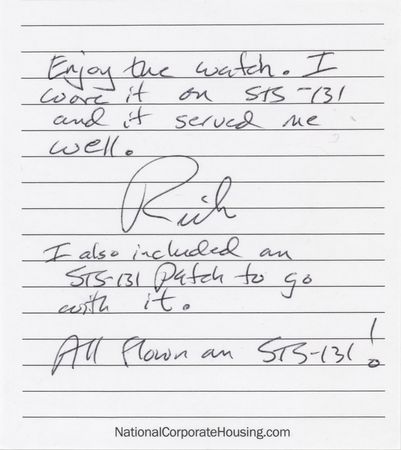 Enjoy the watch. I
wore it on STS-131
and it served me
well.
Rick
I also included an
STS-131 patch to go
with it.
All flown on STS-131!
NationalCorporateHousing.com